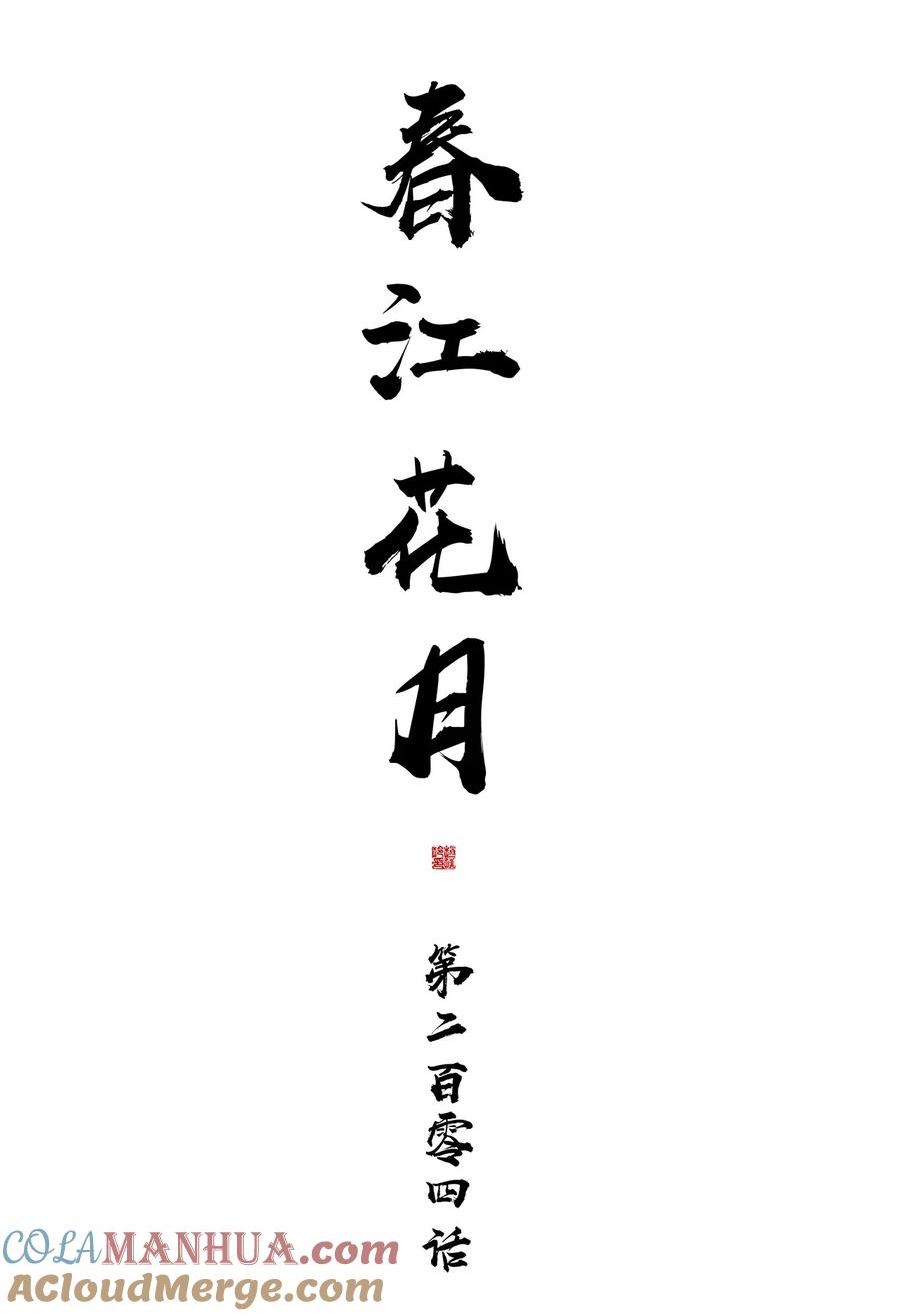 春江花月
第二百零四话
COLAMANHUA.com
ACloudMerge.com